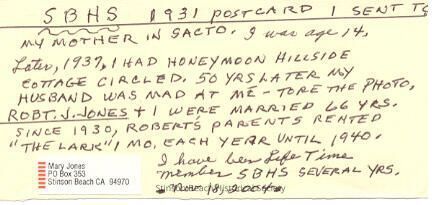 SBHS 1931 POSTCARD I SENT TO
MY MOTHER IN SACTO. I was age 14.
Later, 1937, I HAD HONEYMOON HILLSIDE
COTTAGE CIRCLED. 50 YRS LATER MY
HUSBAND WAS MAD AT ME - TORE THE PHOTO.
ROBT. J. JONES + I WERE MARRIED 66 YRS.
SINCE 1930, ROBERT'S PARENTS RENTED
"THE LARK", 1 MO. EACH YEAR UNTIL 1940.
I have been Life Time
member SBHS SEVERAL YRS.
Mary Jones
PO Box 353
Stinson Beach CA 94970
Stinson Beach Historical Society